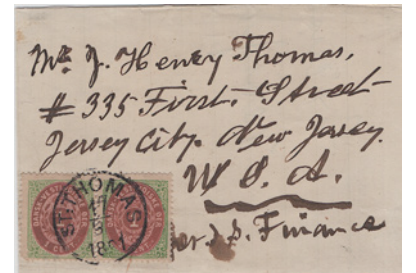 Mr. J. Henry Thomas,
# 335 First Street
Jersey City. New Jersey.
U. S. A.
per S. S. Finance
ST: THOMAS